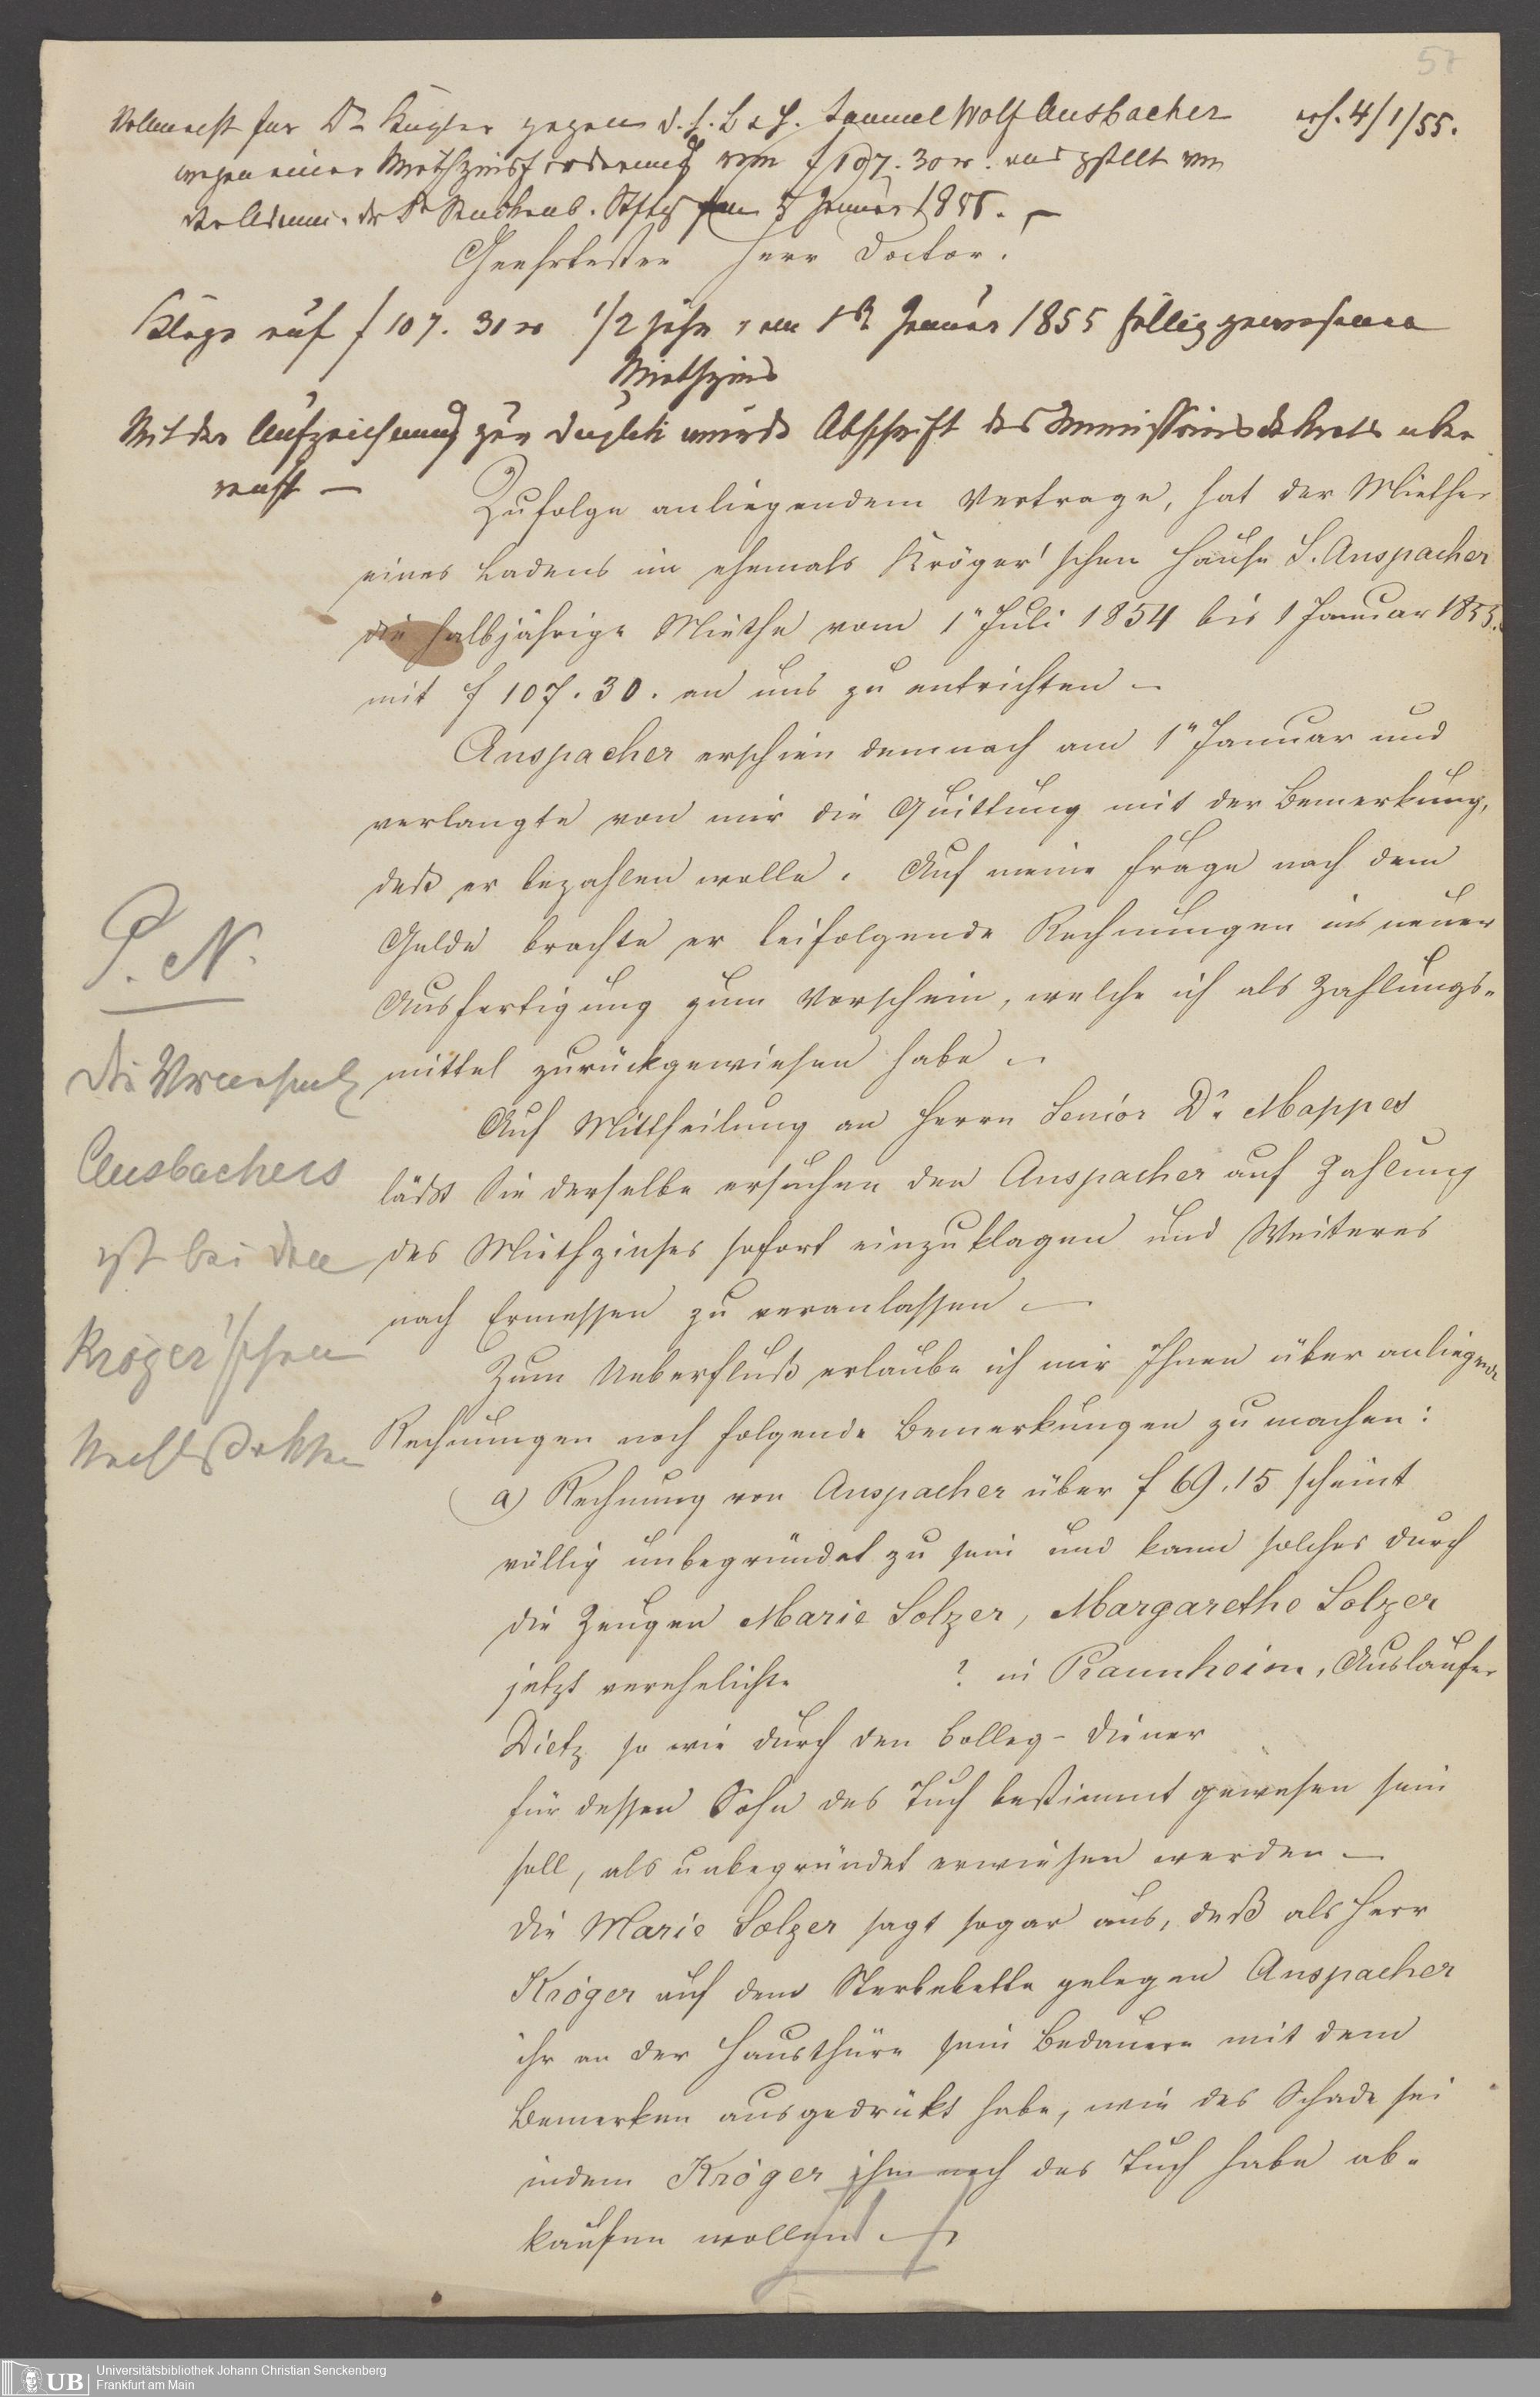 57
Vollmacht für Dr Kugler gegen d. h. B & H. Samuel Wolf Ansbacher erh. 4/1/55.
wegen einer Miethzinsforderung von f 107. 30 xr. ausgestellt von
der Admin. der Dr Senckenb. Stftg am 3 Januar 1855. –
Geehrtester Herr Doctor!
Klage auf f 107. 30 xr 1/2 jähr. am 1st Januar 1855 fällig gewesenen
Miethzins
Mit der Aufzeichnung zur Duplik wurde Abschrift des Immissionsdekrets über
reicht –
Zufolge anliegendem Vertrage, hat der Miether
eines Ladens im ehemals Kröger'schen Hause S. Anspacher
die halbjährige Miethe vom 1" Juli 1854 bis 1 Januar 1855.
mit f 107. 30. an uns zu entrichten –
Anspacher erschien demnach am 1" Januar und
verlangte von mir die Quittung mit der Bemerkung,
daß er bezahlen wolle. Auf meine Frage nach dem
Gelde brachte er beifolgende Rechnungen in neuer
Ausfertigung zum Vorschein, welche ich als Zahlungs-
mittel zurückgewiesen habe –
Auf Mittheilung an Herrn Senior Dr Mappes
läßt Sie derselbe ersuchen den Anspacher auf Zahlung
des Miethzinses sofort einzuklagen und Weiteres
nach Ermessen zu veranlassen –
Zum Ueberfluß erlaube ich mir Ihnen über anliegende
Rechnungen noch folgende Bemerkungen zu machen:
a) Rechnung von Anspacher über f 69. 15 scheint
völlig unbegründet zu sein und kann solches durch
die Zeugen Marie Solzer, Margarethe Solzer
jetzt verehelichte ? in Raunheim, Ausläufer
Dietz so wie durch den Colleg-Diener
für dessen Sohn das Tuch bestimmt gewesen sein
soll, als unbegründet erwiesen werden –
Die Marie Solzer sagt sogar aus, daß als Herr
Kröger auf dem Sterbebette gelegen Anspacher
ihr an der Hausthüre sein Bedauern mit dem
Bemerken ausgedrückt habe, wie das Schade sei
indem Kröger ihm noch das Tuch habe ab-
kaufen wollen –
P. N.
Die
Ansbachers
ist bei den
Kröger'schen
Universitätsbibliothek Johann Christian Senckenberg
Frankfurt am Main
UB